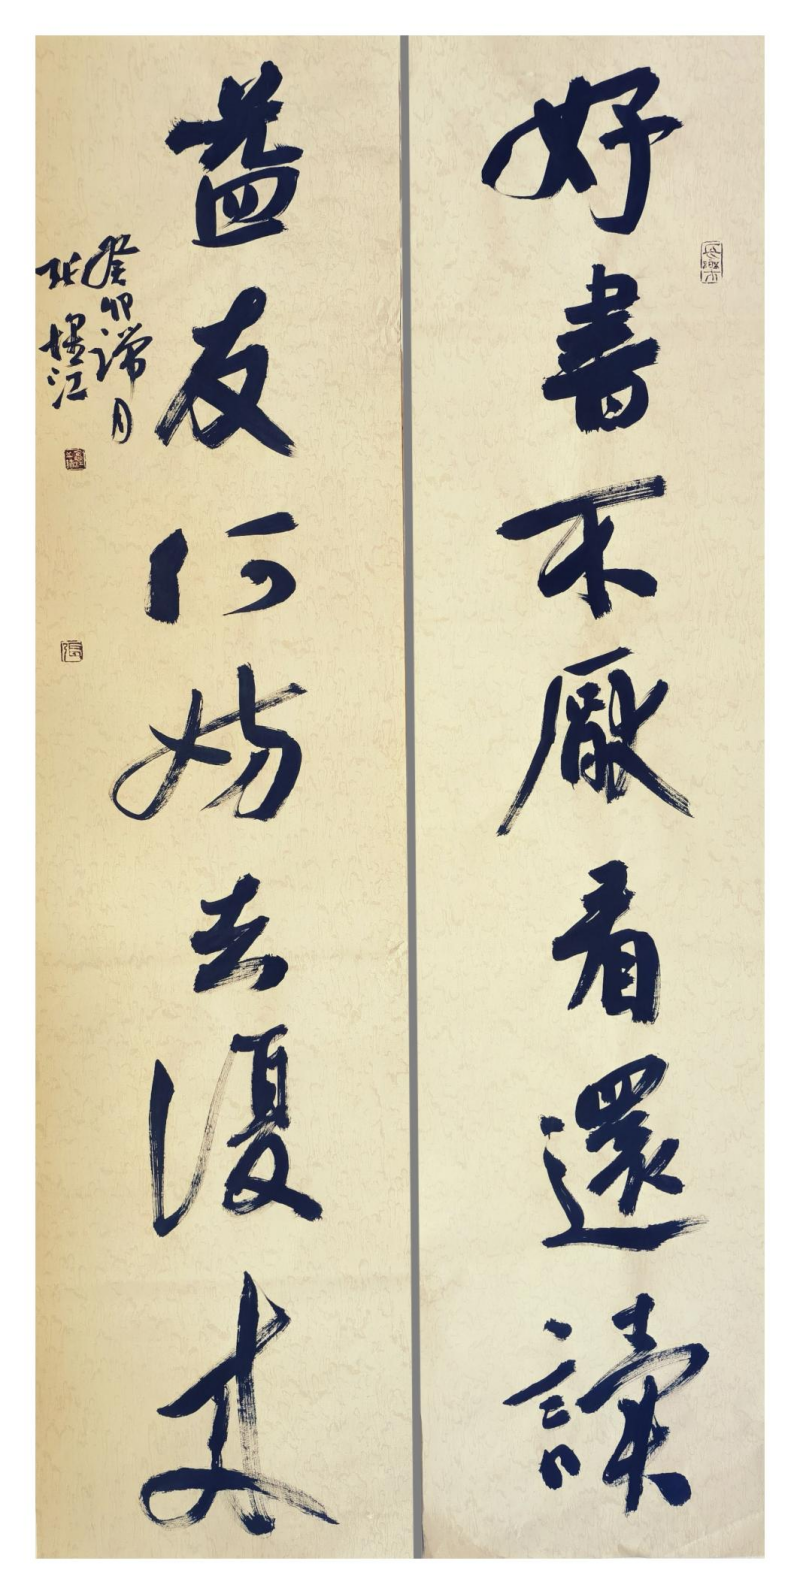 好書不厭看還讀
益友何妨去復來
癸卯端月
张江
張